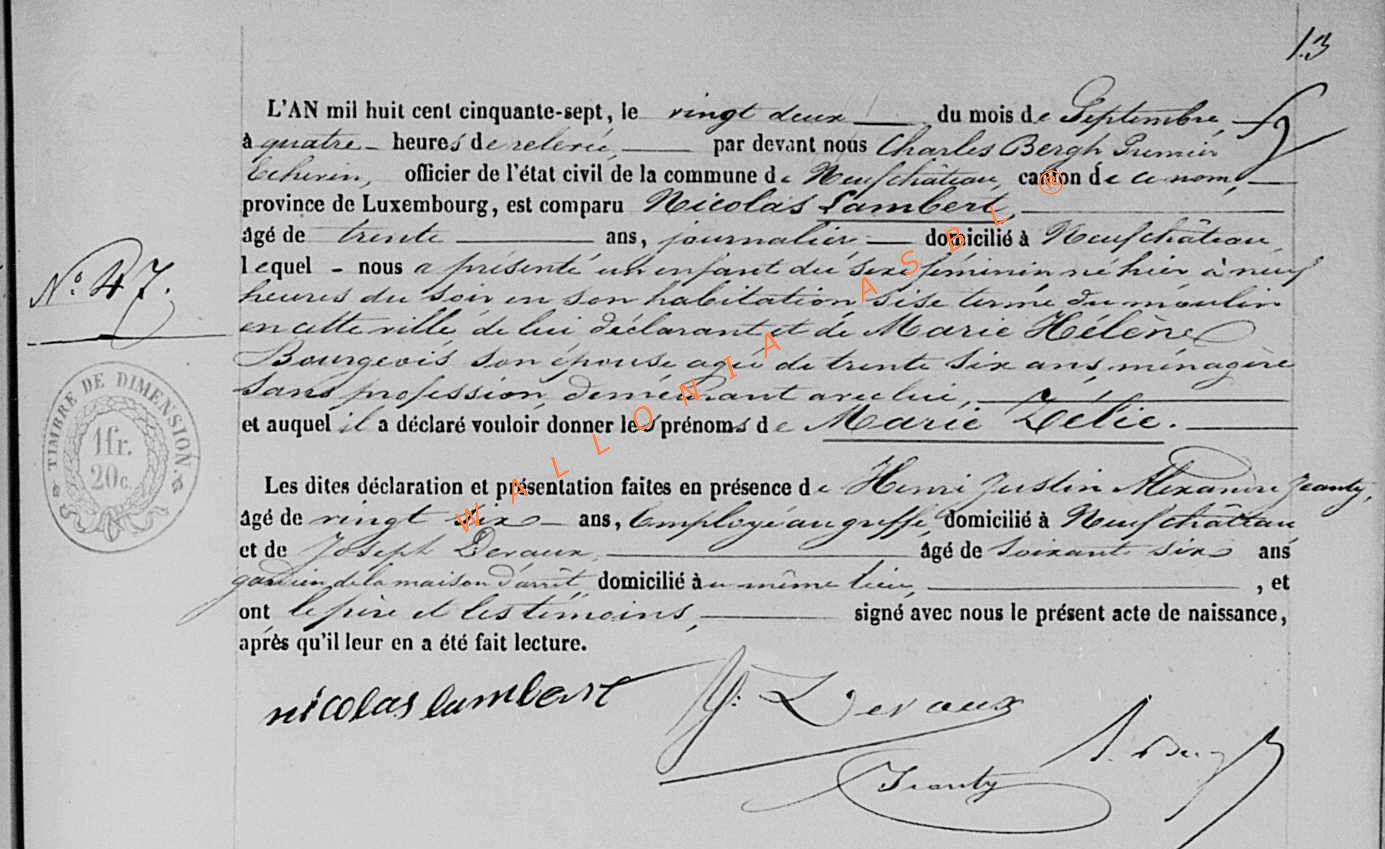 13
L'AN mil huit cent cinquante-sept, le vingt deux du mois de Septembre
à quatre heures de relevée, par devant nous Charles Bergh Premier
Echevin, officier de l'état civil de la commune de Neufchâteau, canton de ce nom,
province de Luxembourg, est comparu Nicolas Lambert,
âgé de trente ans, journalier domicilié à Neufchâteau,
lequel nous a présenté un enfant du sexe féminin né hier à neuf
N° 47.
heures du soir en son habitation sise terme du moulin
en cette ville, de lui déclarant et de Marie Hélène
Bourgeois son épouse agée de trente six ans, ménagère
sans profession, demeurant avec lui,
et auquel il a déclaré vouloir donner les prénoms de Marie Zélie.
TIMBRE DE DIMENSION.
1fr.
20c.
Les dites déclaration et présentation faites en présence de Henri Justin Alexandre Jeanty,
âgé de vingt six ans, Employé au greffe, domicilié à Neufchâteau
et de Joseph Devaux, âgé de soixante six ans
gardien de la maison d'arrêt, domicilié au même lieu, , et
ont le père et les témoins, signé avec nous le présent acte de naissance,
après qu'il leur en a été fait lecture.
nicolas lambert
J: Devaux
Jeanty
WALLONIA ASBL ®